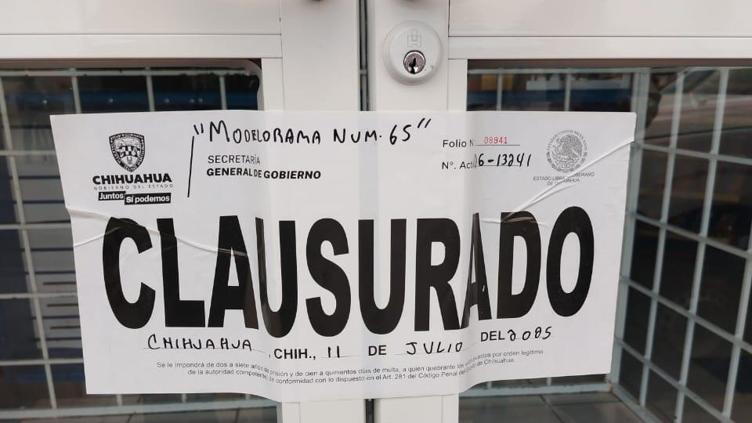 "MODELORAMA NUM. 65"
CHIHUAHUA
GOBIERNO DEL ESTADO
Juntos Sí podemos
SECRETARÍA
GENERAL DE GOBIERNO
Folio N 08941
N°. Act 16-13241
ESTADO LIBRE SOBERANO
DE CHIHUAHUA
CLAUSURADO
CHIHUAHUA, CHIH., 11 DE JULIO DEL 2025
Se le impondrá de dos a siete años de prisión y de cien a quinientos días de multa, a quien quebrante los puestos por orden legítima
de la autoridad competente, de conformidad con lo dispuesto en el Art. 281 del Código Penal de Chihuahua.